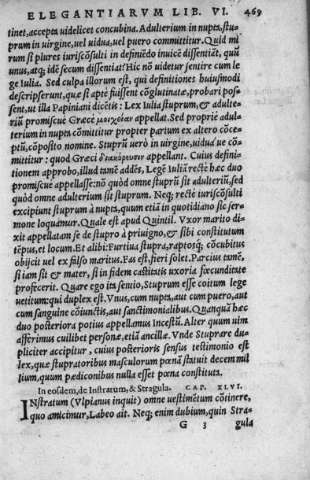 ELEGANTIARVM LIB. VI. 469
tinet, accepta uidelicet concubina. Adulterium in nupta, stu-
prum in uirgine, uel uidua, uel puero committitur. Quid mi
rum est plures iuriscōsulti in definiēdo inuicē dissentiāt, quū
unus, atq; idē secum dissentiat? Hic nō uidetur sentire cum le
ge Iulia. Sed culpa illorum est, qui definitiones huiusmodi
descripserunt, quæ est aptè fuissent cōglutinatæ, probari pos-
sent, ut illa Papiniani dicētis: Lex Iulia stuprum, & adulte-
riū promiscue Græcè μοιχείαν appellat. Sed propriè adul-
terium in nupta cōmittitur propter partum ex altero conce-
ptū, cōposito nomine. Stuprū uerò in uirgine, uidua ue cō
mittitur: quod Græci appellant. Cuius defini-
tionem approbo, illud tamē addēs, Legē Iuliā rectè hæc duo
promiscue appellasse: nō quòd omne stuprū sit adulteriū, sed
quòd omne adulterium sit stuprum. Neq; rectè iuriscōsulti
excipiunt stuprum à nupta, quum etiā in quotidiano sic ser-
mone loquamur. Quale est apud Quintil. Vxor marito di-
xit appellatam se de stupro à priuigno, & sibi constitutum
tēpus, et locum. Et alibi: Furtiua stupra, raptosq́; cōcubitus
obijcit uel ex falso maritus. Fas est, fieri solet. Parcius tamē,
si iam sit & mater, si in fidem castitatis uxoria fœcunditate
profecerit. Quare ego ita sentio, Stuprum esse coitum lege
uetitum: qui duplex est. Vnus, cum nupta, aut cum puero, aut
cum sanguine cōiunctis, aut sanctimonialibus. Quanquā hæc
duo posteriora potius appellamus Incestū. Alter quum uim
afferimus cuilibet personæ, etiā ancillæ. Vnde Stuprare du-
pliciter accipitur, cuius posterioris sensus testimonio est
lex, quæ stupratoribus masculorum pœnā statuit decem mil
lium, quum pædiconibus nulla esset pœna constituta.
In eosdem, de Instratum, & Stragula. CAP. XLVI.
INstratum (Vlpianus inquit) omne uestimētum cōtinere,
quo amicimur, Labeo ait. Neq; enim dubium, quin Stra-
G 3 gula